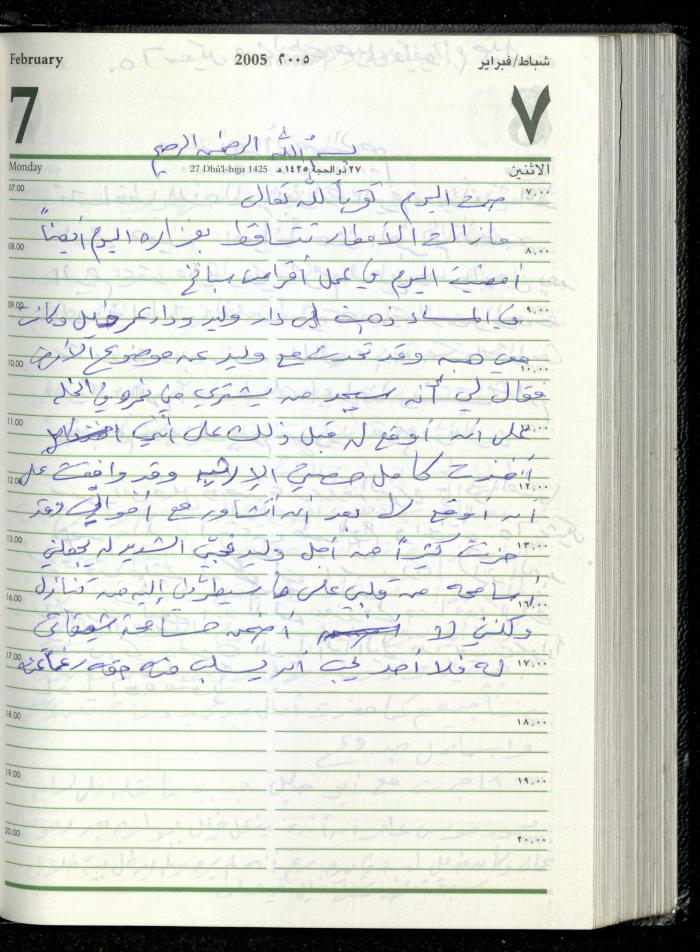 February 2005 ٢٠٠٥ شباط/فبراير
7 ٧
بسم الله الرحمن الرحيم
Monday 27 Dhū'l-hijja 1425 ٢٧ ذو الحجة ١٤٢٥هـ الاثنين
07.00 ٧,٠٠
صمت اليوم تقرباً لله تعالى
مازالت الأمطار تتساقط بغزاره اليوم أيضاً
08.00 ٨,٠٠
أمضيت اليوم في عمل أقراص سبانخ
09.00 ٩,٠٠
في المساء ذهبت إلى دار وليد ودار عمر وكانت
معي هبه وقد تحدث مع وليد عن موضوع الأرض
10.00 ١٠,٠٠
فقال لي أنه سيجد من يشتري من
11.00
على أن أوقع له قبل ذلك على أنني
أخذت كامل حصتي الإرثيه وقد وافقت على
12.00 ١٢,٠٠
أن أوقع له بعد أن أتشاور مع أخوالي وقد
13.00 ١٣,٠٠
حزنت كثيراً من أجل وليد فحبي الشديد له يجعلني
أسامحه من قلبي على ما سيطرني إليه من تنازل
16.00 ١٦,٠٠
ولكنني لا أضمن مسامحة شقيقاتي
17.00 ١٧,٠٠
له فلا أحد يحب أن يسلب منه حقه رغماً عنه
18.00 ١٨,٠٠
19.00 ١٩,٠٠
20.00 ٢٠,٠٠